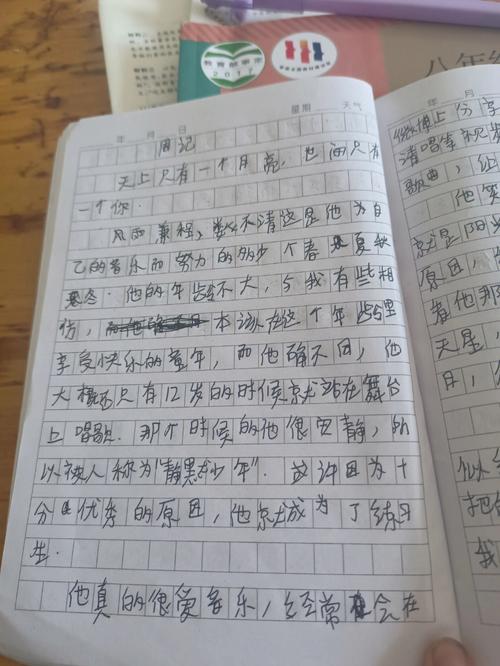 教育部审定
2017
八年
年 月 日 星期 天气
周记
天上只有一个月亮，世间只有
一个你.
风雨兼程，数不清这是他为自
己的音乐而努力的多少个春夏秋
寒冬. 他的年龄不大，与我有些相
仿，本该在这个年龄里
享受快乐的童年，而他确不同，他
大概还只有12岁的时候就站在舞台
上唱歌. 那个时候的他很安静，所
以被人称为"静黑少年". 也许因为十
分优秀的原因，他就成为了练习
生.
他真的很爱音乐，经常会在
年 月
微博上分享
清唱等视
歌曲，红
他笑
就是阳光
原因，但
着他那
天星，
月，
似乎
把
我